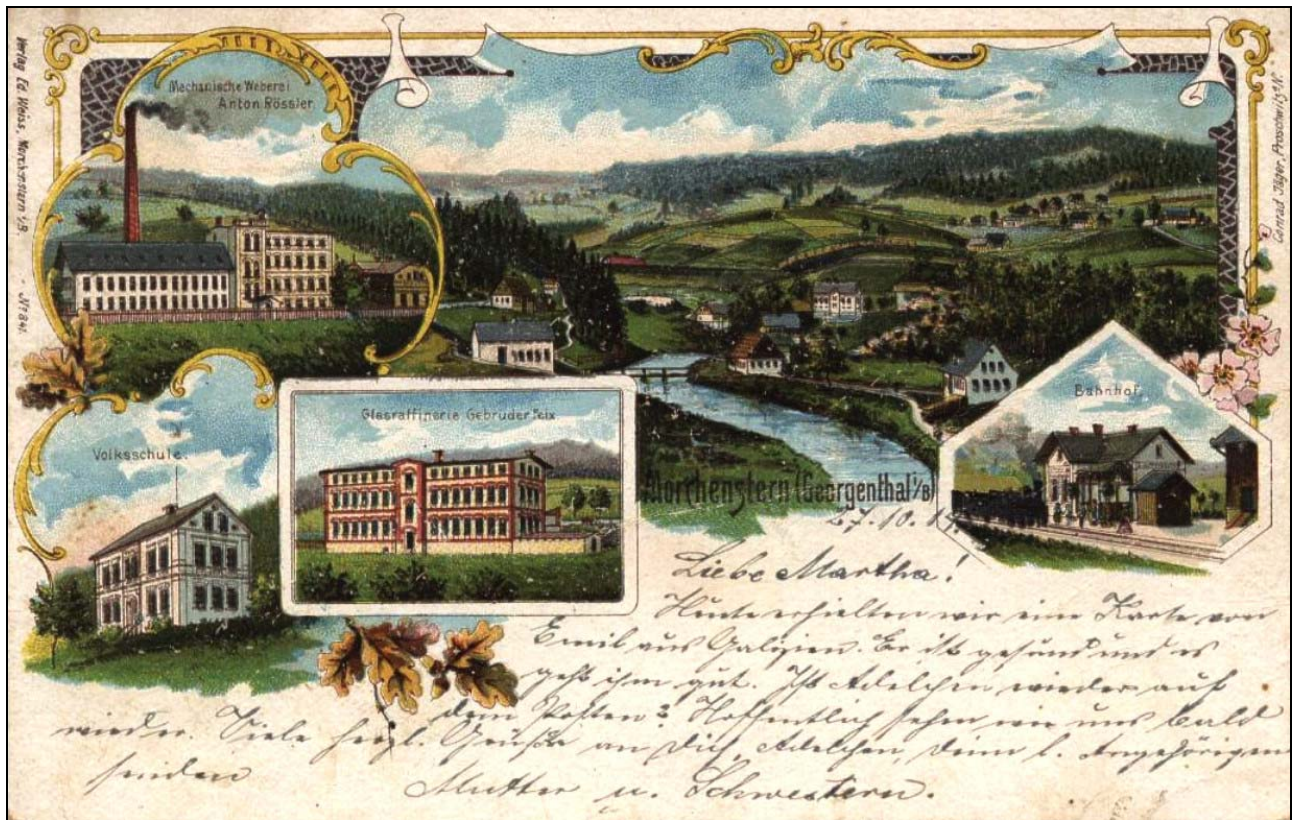 Verlag Ed. Weiss, Morchenstern i/B. - Nr 841.
Conrad Jäger, Proschwitz a/N.
Mechanische Weberei
Anton Rössler.
Volksschule.
Glasraffinerie Gebrüder Feix
Bahnhof.
Morchenstern (Georgenthal i/B)
27.10.14.
Liebe Martha!
Heute erhielten wir eine Karte von
Emil aus Galizien. Er ist gesund und es
geht ihm gut. Ist Adelchen wieder auf
dem Posten? Hoffentlich sehen wir uns bald
wieder. Viele herzl. Grüße an Dich, Adelchen, Deine l. Angehörigen
senden
Mutter u. Schwestern.